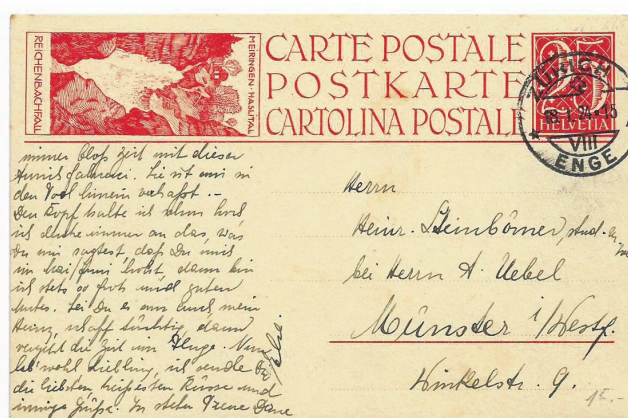 REICHENBACHFALL
MEIRINGEN-HASLITAL
CARTE POSTALE
POSTKARTE
CARTOLINA POSTALE
25
HELVETIA
ZÜRICH
18.I.24.-15
VIII
ENGE
immer bloß Zeit mit dieser
Sie ist mir in
den Tod hinein verhaßt. -
Den Kopf halte ich oben hoch
ich denke immer an das, was
Du mir sagtest daß Du mich
im Mai/Juni holst, dann bin
ich stets so froh und guten
Mutes. Sei Du es auch mein
Heinz, schaff tüchtig, dann
vergeht die Zeit im Fluge. Nun
leb' wohl Liebling, ich sende Dir
die liebsten heißesten Küsse und
innige Grüße. In steter Treue Deine
Herrn
Heinr. Steinbömer, stud.
bei Herrn A. Uebel
Münster i/Westf.
Winkelstr. 9.
15.-